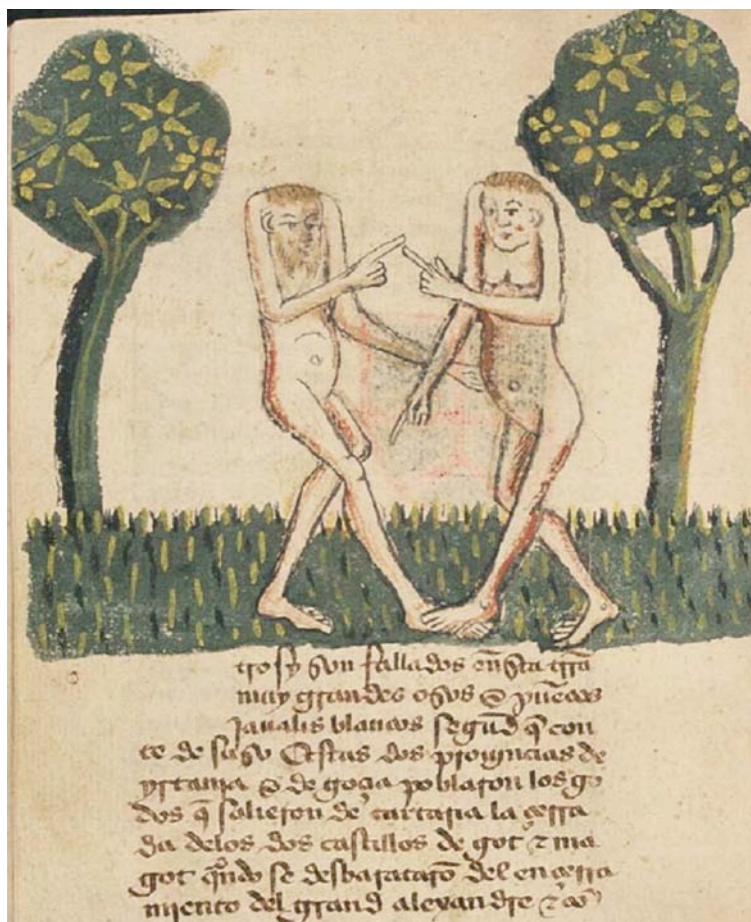 trosy son fallados en esta trra
muy grandes osos & puercos
Javalis blancos segund q̃ con
te de suso Estas dos provinçias de
yrtania & de goçia poblaron los go
dos q̃ salieron de tartaria la çerra
da delos dos castillos de got & ma
got qũdo se desbarataron del ençerra
miento del grand alexandre &